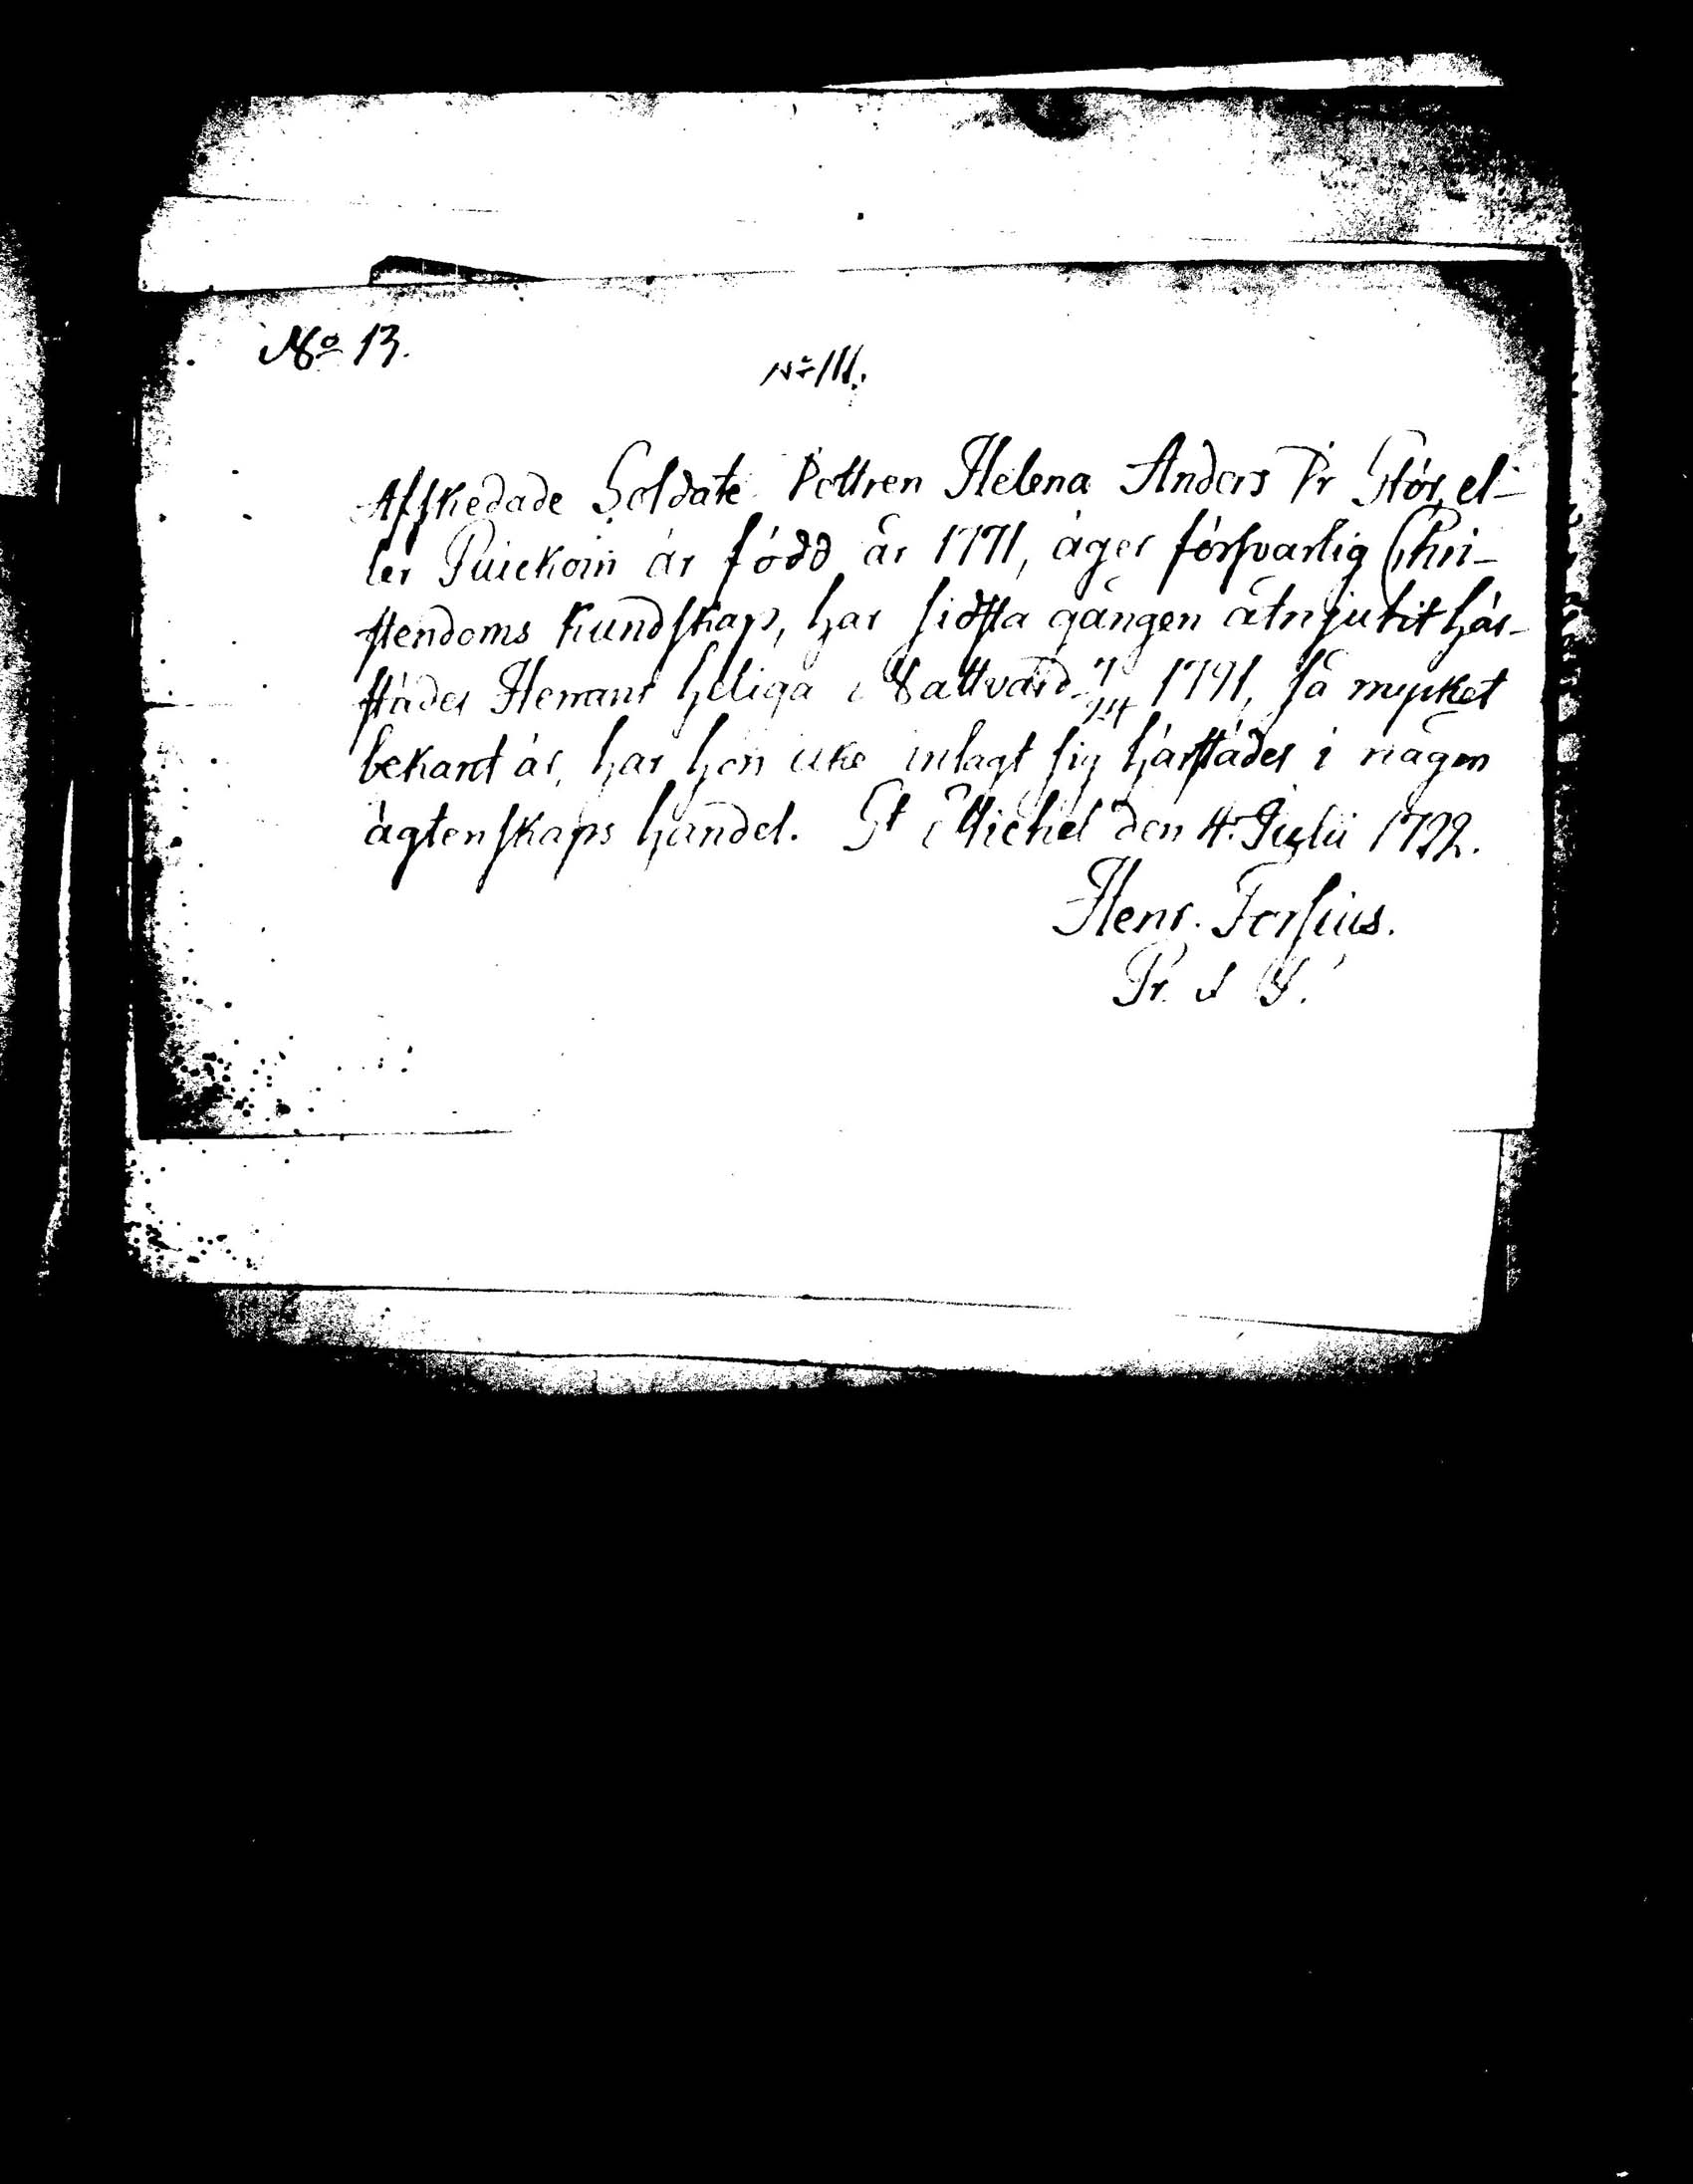 No 13.
No III.
Afskedade Soldate Dottren Helena Anders Dr Stör, el-
ler Puickoin är född år 1771, äger försvarlig Chri-
stendoms kundskap, har sidsta gången åtnjutit här-
städes Herrans heliga Nattvard 7/24 1791, så mycket
bekant är, har hon icke inlagt sig härstädes i någon
ägtenskaps handel. St Michel den 4. Julii 1792.
Henr. Forsius.
Pr. I